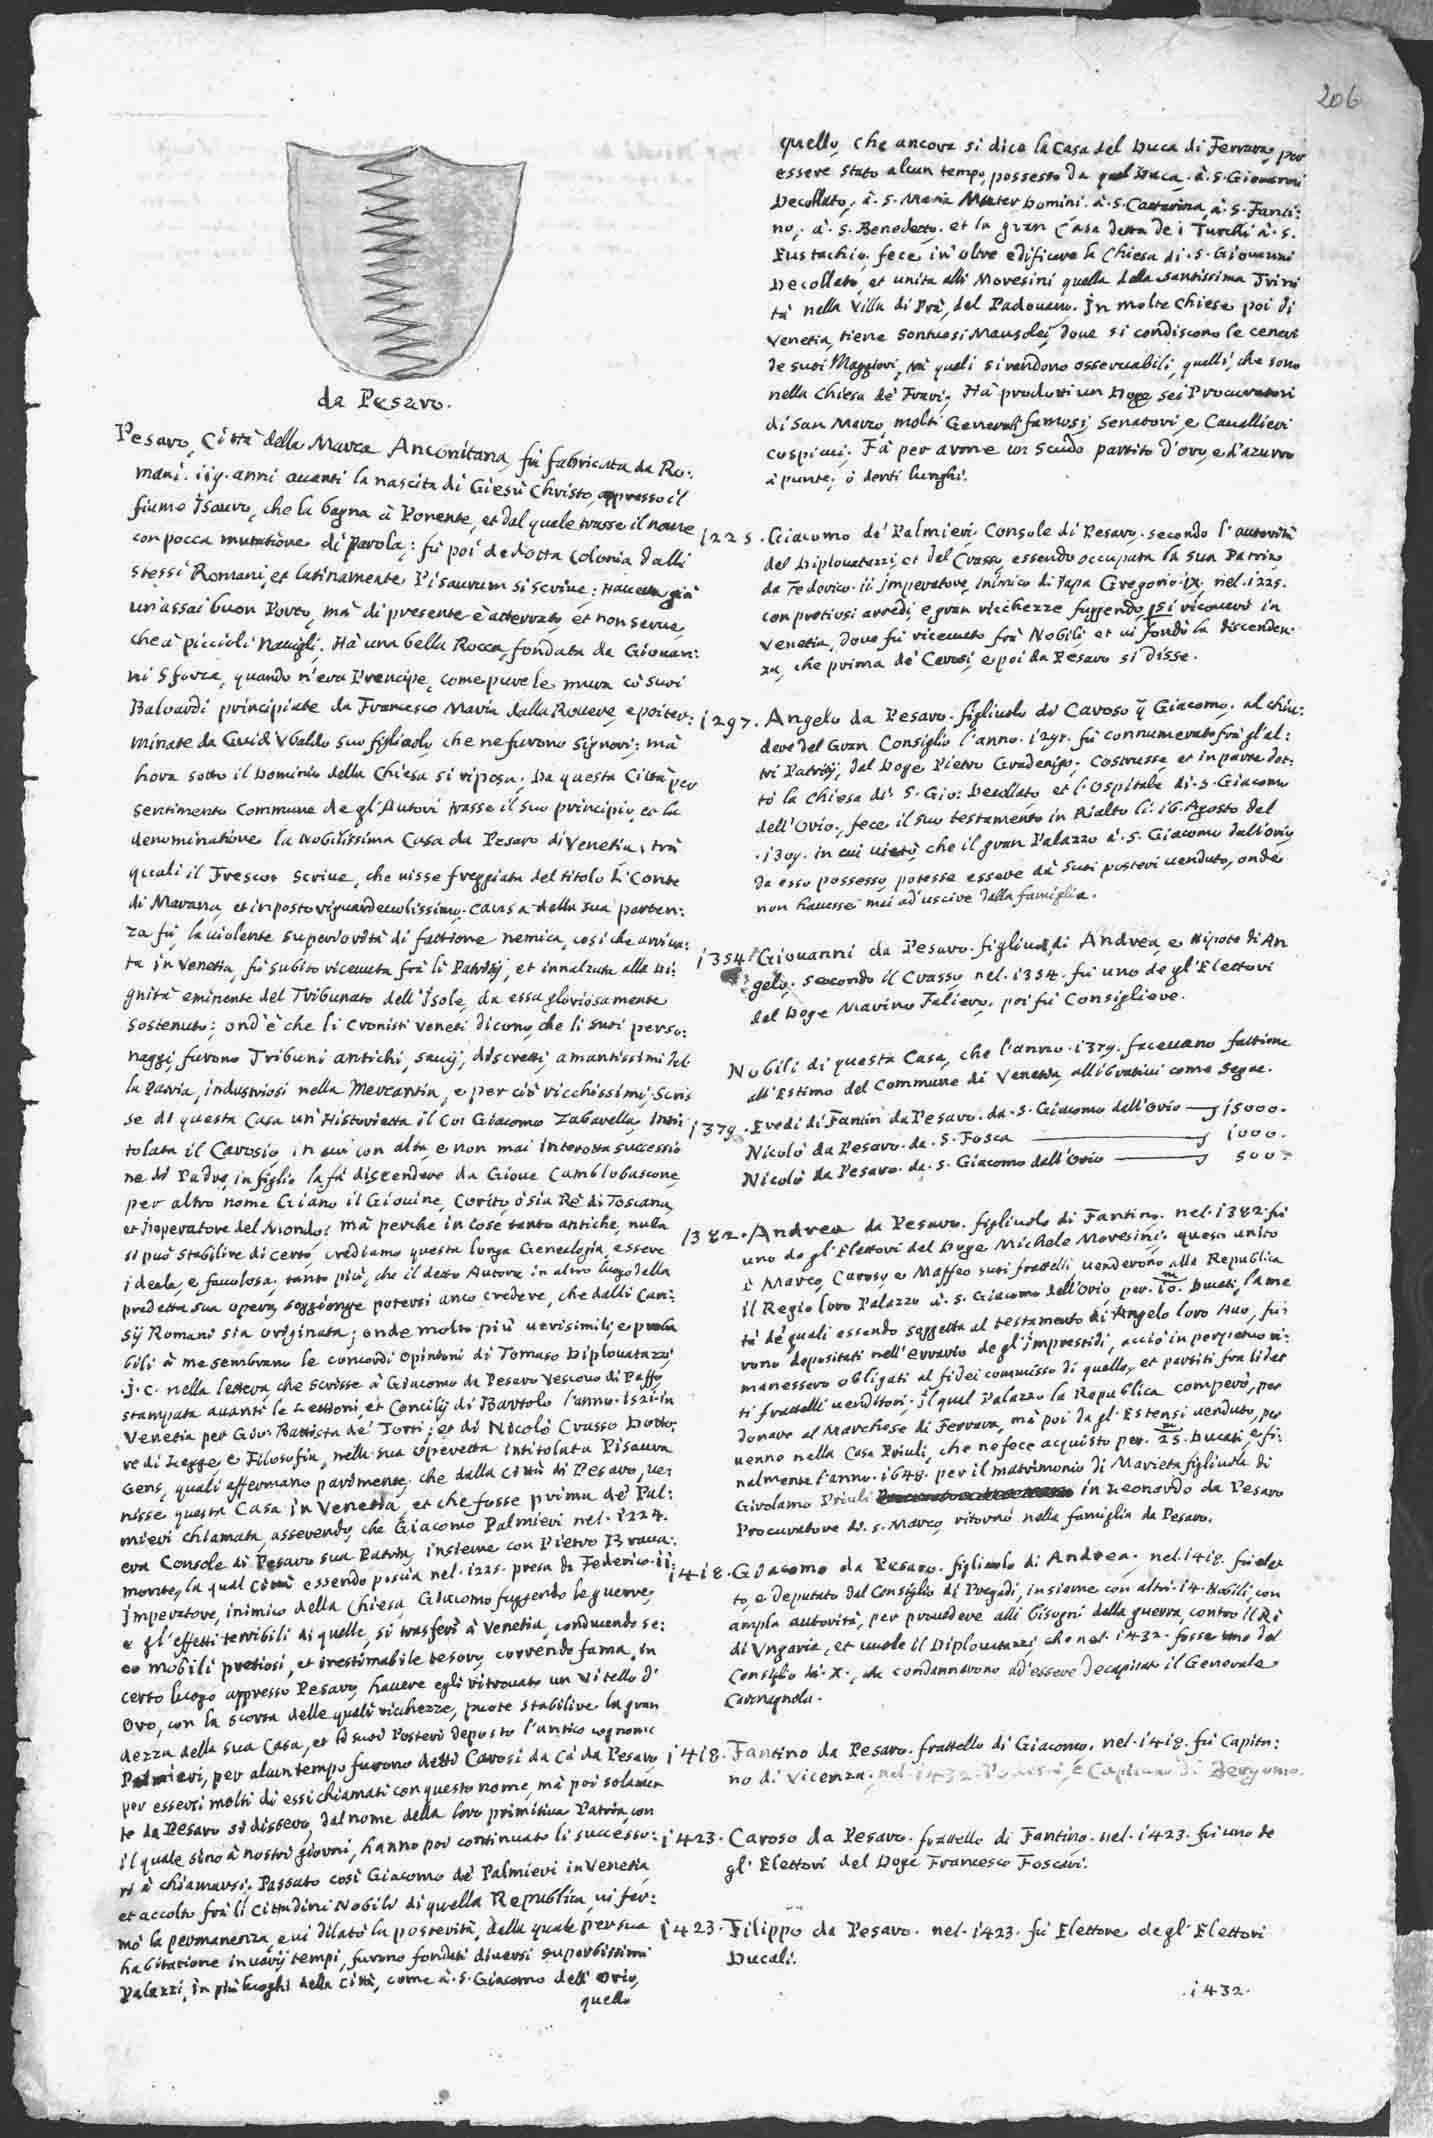 206
da Pesaro.
Pesaro, Città della Marca Anconitana, fù fabricata da Ro:
mani. 119. anni auanti la nascita di Giesù Christo, appresso il
fiume Isauro, che la bagna à Ponente, et dal quale trasse il nome
con pocca mutatione di parola; fù poi dedotta Colonia dalli
stessi Romani, et latinamente Pisaurum si scriue; Haueua già
un'assai buon Porto, mà di presente è atterrato, et non serue,
che à piccioli Nauigli. Hà una bella Rocca, fondata da Giouan:
ni Sforza, quando n'era Prencipe, come pure le mura cò suoi
Baloardi principiate da Francesco Maria dalla Rouere, e poi ter:
minate da Guid'Vbaldo suo figliuolo, che ne furono Signori; mà
hora sotto il Dominio della Chiesa si riposa. Da questa Città per
sentimento Commune de gl'Autori trasse il suo principio, et la
denominatione la Nobilissima Casa da Pesaro di Venetia, trà
quali il Frescot scriue, che uisse freggiata del titolo di Conte
di Marana, et in posto riguardeuolissimo. Causa della sua parten:
za fù, la uiolente superiorità di fattione nemica, così che arriua:
ta in Venetia, fù subito riceuuta frà li Patritij, et innalzata alla Di:
gnità eminente del Tribunato dell'Isole, da essa gloriosamente
sostenuto; ond'è che li Cronisti Veneti dicono, che li suoi perso:
naggi, furono Tribuni antichi, sauij, discretti, amantissimi del
la Patria, industriosi nella Mercantia, e per ciò ricchissimi. Scris
se di questa Casa un'Historietta il Co: Giacomo Zabarella, Inti
tolata il Carosio, in cui con alta, e non mai interotta successio
ne di Padre, in figlio la fà discendere da Gioue Camblobascone,
per altro nome Giano il Giouine, Corito, ò sia Rè di Toscana,
et Imperatore del Mondo; mà perche in cose tanto antiche, nulla
si può stabilire di certo, crediamo questa lunga Genealogia, essere
ideala, e fauolosa. tanto più, che il detto Autore in altro luogo della
predetta sua opera, soggionge potersi anco credere, che dalli Can:
sij Romani sia originata; onde molto più uerisimili, e proba
bili à me sembrano le concordi opinioni di Tomaso Diplouatazzi
.J.C. nella lettera, che scrisse à Giacomo da Pesaro Vescouo di Paffo,
stampata auanti le Lettioni, et Concilij di Bartolo l'anno .1521. in
Venetia per Gio: Battista de' Torti; et di Nicolò Crasso Dotto:
re di Legge e Filosofia, nella sua operetta intitolata Pisaura
Gens, quali affermano parimente, che dalla città di Pesaro, ue:
nisse questa Casa in Venetia, et che fosse prima de' Pal:
mieri chiamata, asserendo, che Giacomo Palmieri nel .1224.
era Console di Pesaro sua Patria, insieme con Pietro Braua:
monte, la qual città essendo poscia nel .1225. presa da Federico .ii.
Imperatore, inimico della Chiesa, Giacomo fuggendo le guerre,
e gl'effetti terribili di quelle, si trasferì à Venetia, conducendo se:
co mobili pretiosi, et inestimabile tesoro, correndo fama, in
certo luogo appresso Pesaro, hauere egli ritrouato un Vitello d'
oro, con la scorta delle quali ricchezze, puote stabilire la gran
dezza della sua Casa, et li suoi Posteri deposto l'antico cognome
Palmieri, per alcun tempo furono detti Carosi da Cà da Pesaro,
per essersi molti di essi chiamati con questo nome, mà poi solamen
te da Pesaro si dissero, dal nome della loro primitiua Patria, con
il quale sino à nostri giorni, hanno poi continuato li successo:
ri à chiamarsi. Passato così Giacomo de' Palmieri in Venetia,
et accolto frà li Cittadini Nobili di quella Republica, ui fer:
mò la permanenza, e ui dilatò la posterità, dalla quale per sua
habitatione in uarij tempi, furono fondati diuersi superbissimi
Palazzi, in più luoghi della Città, come à .S. Giacomo dell'Orio,
quello
quello, che ancora si dice la Casa del Duca di Ferrara, per
essere stato alcun tempo, possesso da quel Duca. à .S. Giouanni
Decollato. à .S. Maria Mater Domini. à .S. Cattarina, à .S. Fanti:
no. à .S. Benedetto. et la gran Casa detta de i Turchi à .S.
Eustachio. fece in oltre edificare la Chiesa di .S. Giouanni
Decollato, et unita alli Moresini quella della Santissima Trini
tà nella Villa di Prà, del Padouano. In molte Chiese poi di
Venetia, tiene sontuosi Mausolei, doue si condiscono le ceneri
de suoi Maggiori, trà quali si rendono osseruabili, quelli, che sono
nella Chiesa de' Frari. Hà prodotti un Doge, sei Procuratori
di San Marco, molti Generali famosi, Senatori, e Cauallieri
cospicui. Fà per arme un Scudo partito d'oro, e d'azurro
à punte, ò denti lunghi.
1225. Giacomo de' Palmieri Console di Pesaro. secondo l'autorità
del Diplouatazzi, et del Crasso, essendo occupata la sua Patria
da Federico .ii. Imperatore, inimico di Papa Gregorio .ix. nel .1225.
con pretiosi arredi, e gran ricchezze fuggendo, si ricouerò in
Venetia, doue fù riceuuto frà Nobili, et ui fondò la discenden:
za, che prima de' Carosi, e poi da Pesaro si disse.
1297. Angelo da Pesaro. figliuolo di Caroso q̃ Giacomo, al chiu:
dere del Gran Consiglio l'anno .1297. fù connumerato frà gl'al:
tri Patritij, dal Doge Pietro Gradenigo. Costrusse, et in parte dot:
tò la Chiesa di S. Gio: Decollato, et l'Ospitale di .S. Giacomo
dell'Orio., fece il suo testamento in Rialto li .16. Agosto del
.1309. in cui uietò, che il gran Palazzo à .S. Giacomo dall'Orio,
da esso possesso, potesse essere dà suoi posteri uenduto, onde
non hauesse mai ad'uscire dalla famiglia.
1354. Giouanni da Pesaro. figliuol di Andrea, e Nipote di An
gelo. secondo il Crasso, nel .1354. fù uno de gl'Elettori
del Doge Marino Faliero. poi fù Consigliere.
Nobili di questa Casa, che l'anno .1379. faceuano fattione
all'Estimo del Commune di Venetia, allibratiui come segue.
1379. Eredi di Fantin da Pesaro. da .S. Giacomo dell'Orio — 15000.
Nicolò da Pesaro. da .S. Fosca — 1000.
Nicolò da Pesaro. da .S. Giacomo dall'Orio — 500.
1382. Andrea da Pesaro. figliuolo di Fantino. nel .1382. fù
uno de gl'Elettori del Doge Michele Moresini. questi unito
à Marco, Caroso, e Maffeo suoi fratelli uenderono alla Republica
il Regio loro Palazzo à .S. Giacomo dell'Orio, per .10. m Ducati, la me
tà de' quali essendo soggetta al testamento di Angelo loro Auo, fu:
rono depositati nell'errario de gl'Imprestidi, acciò in perpetuo ri:
manessero obligati al fideicommisso di quello, et partiti fra li det
ti fratelli uenditori. Il qual Palazzo la Republica comperò, per
donare al Marchese di Ferrara, mà poi da gl'Estensi uenduto, per
uenne nella Casa Priuli, che ne fece acquisto per .25. m Ducati, e fi:
nalmente l'anno .1648. per il matrimonio di Marieta figliuola di
Girolamo Priuli in Leonardo da Pesaro
Procuratore di .S. Marco, ritornò nella famiglia da Pesaro.
1418. Giacomo da Pesaro. figliuolo di Andrea. nel .1418. fù elet
to, e deputato dal Consiglio di Pregadi, insieme con altri .14. Nobili, con
ampla autorità, per prouedere alli bisogni della guerra, contro il Rè
di Vngaria, et uuole il Diplouatazzi, che nel .1432. fosse uno del
Consiglio di .X., che condannarono ad'essere decapitato il Generale
Carmagnola.
1418. Fantino da Pesaro. frattello di Giacomo. nel .1418. fù Capita:
no di Vicenza. nel .1432. Podestà, e Capitano di Bergomo.
1423. Caroso da Pesaro. frattello di Fantino. nel .1423. fù uno de
gl'Elettori del Doge Francesco Foscari.
1423. Filippo da Pesaro. nel .1423. fù Elettore de gl'Elettori
Ducali.
.1432.